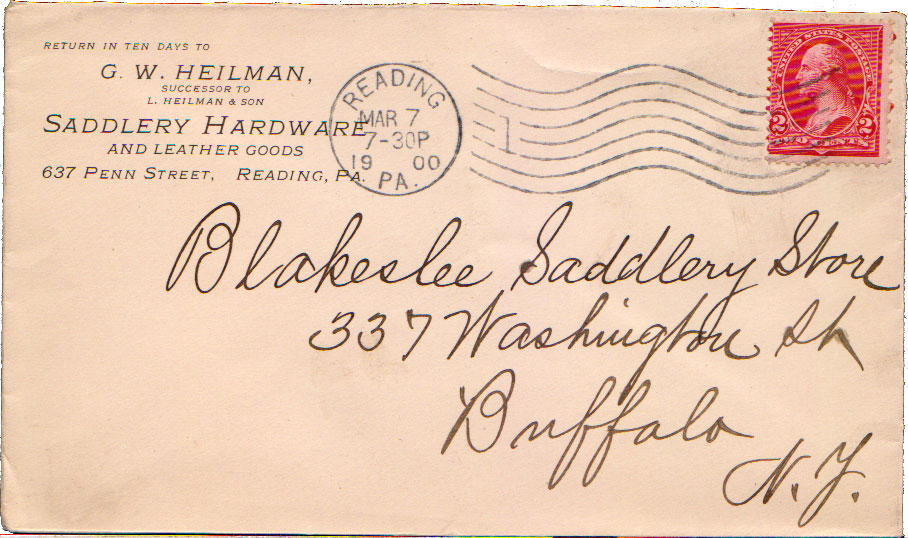 RETURN IN TEN DAYS TO
G. W. HEILMAN,
SUCCESSOR TO
L. HEILMAN & SON
SADDLERY HARDWARE
AND LEATHER GOODS
637 PENN STREET, READING, PA.
READING
MAR 7
7-30P
1900
PA.
1
UNITED STATES POSTAGE
2 2
TWO CENTS
Blakeslee Saddlery Store
337 Washington St
Buffalo
N.Y.